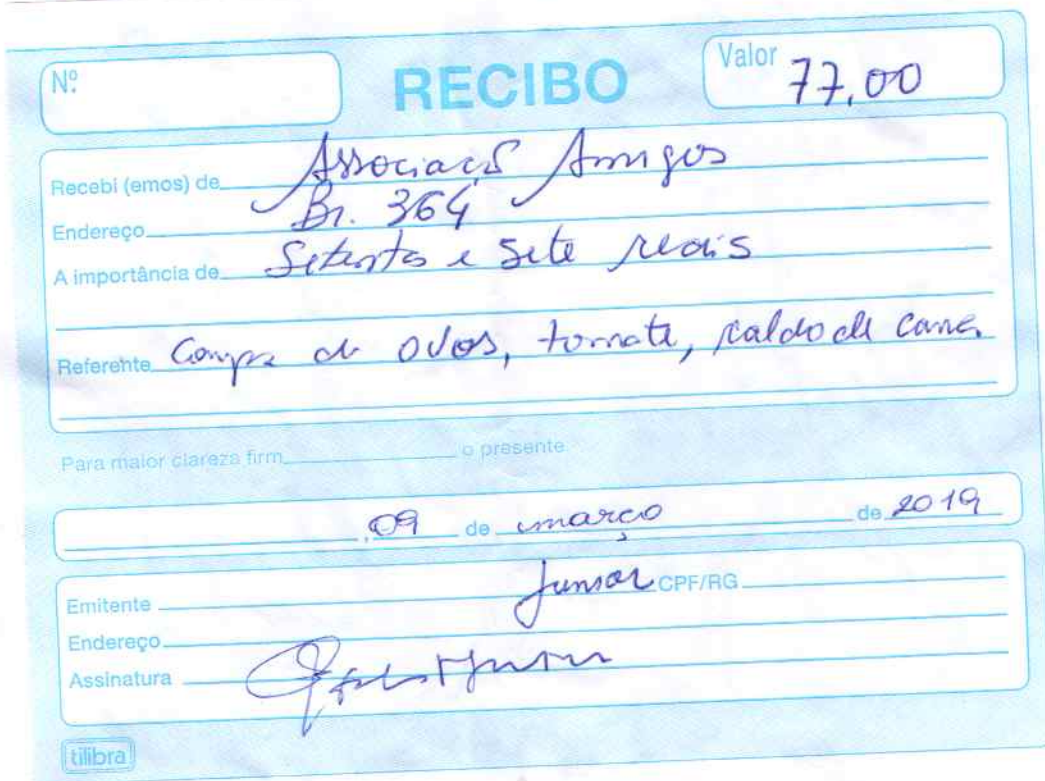 Nº
RECIBO
Valor 77,00
Recebi (emos) de Associaçõ Amigos
Endereço Br. 364
A importância de Setenta e Sete reais
Referente Compra de ovos, tomate, caldo de cana.
Para maior clareza firm o presente
,09 de março de 2019
Emitente Junior CPF/RG
Endereço
Assinatura
tilibra